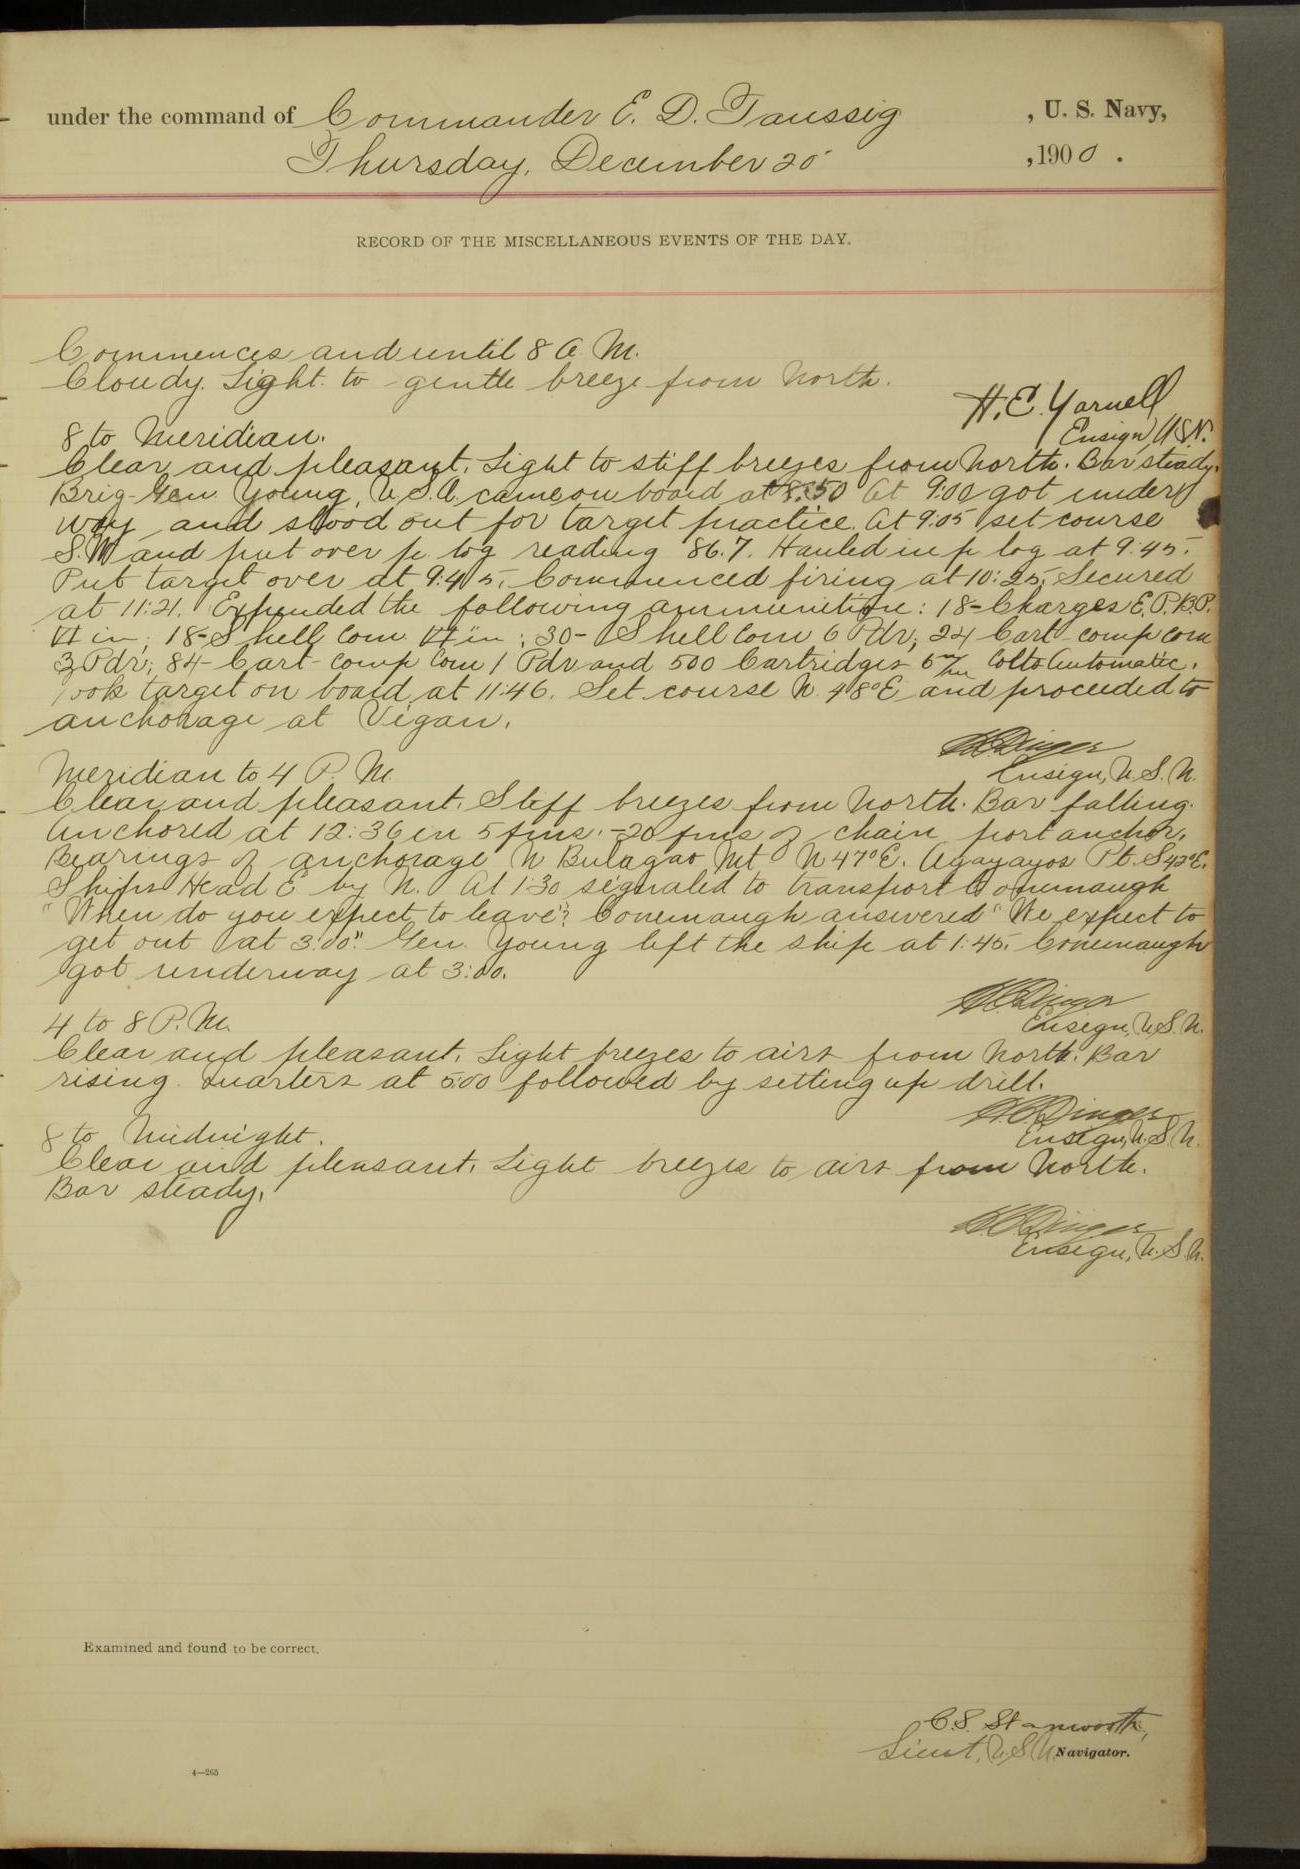 under the command of Commander E. D. Taussig, U. S. Navy,
Thursday, December 20, 1900.
RECORD OF THE MISCELLANEOUS EVENTS OF THE DAY.
Commences and until 8 A. M.
Cloudy. Light to gentle breeze from North.
H. E. Yarnell
Ensign, U.S.N.
8 to Meridian.
Clear and pleasant. Light to stiff breezes from North. Bar steady.
Brig-Gen Young, U.S.A. came on board at 8:50 At 9:00 got under
way and stood out for target practice. At 9:05 set course
S.W and put over p. log reading 86.7. Hauled in p log at 9:45.
Put target over at 9:45. Commenced firing at 10:25. Secured
at 11:21. Expended the following ammunition: 18-Charges E.P.B.P.
VI in; 18-Shell Com VI" in; 30- Shell Com 6 Pdr; 24 Cart-comp com
3 Pdr; 84-Cart-comp Com 1 Pdr and 500 Cartridges 6m/m Colts Automatic.
Took target on board at 11:46. Set course N. 48°E and proceeded to
anchorage at Vigan.
Dinger
Ensign, U.S.N.
Meridian to 4 P. M.
Clear and pleasant. Stiff breezes from North. Bar falling.
Anchored at 12:36 in 5 fms. -20 fms of chain port anchor.
Bearings of anchorage N Bulagao Mt N 47°E. Agayayos Pt. S 42°E.
Ships Head E by N. At 1:30 signaled to transport Conemaugh
"When do you expect to leave"? Conemaugh answered "We expect to
get out at 3:00". Gen. Young left the ship at 1:45. Conemaugh
got underway at 3:00.
Dinger
Ensign, U.S.N.
4 to 8 P.M.
Clear and pleasant. Light breezes to airs from North. Bar
rising. Quarters at 5:00 followed by setting up drill.
Dinger
Ensign, U.S.N.
8 to Midnight.
Clear and pleasant. Light breezes to airs from North.
Bar steady.
Dinger
Ensign, U.S.N.
Examined and found to be correct.
C.S. Stanworth,
Lieut, U.S.N. Navigator.
4—265